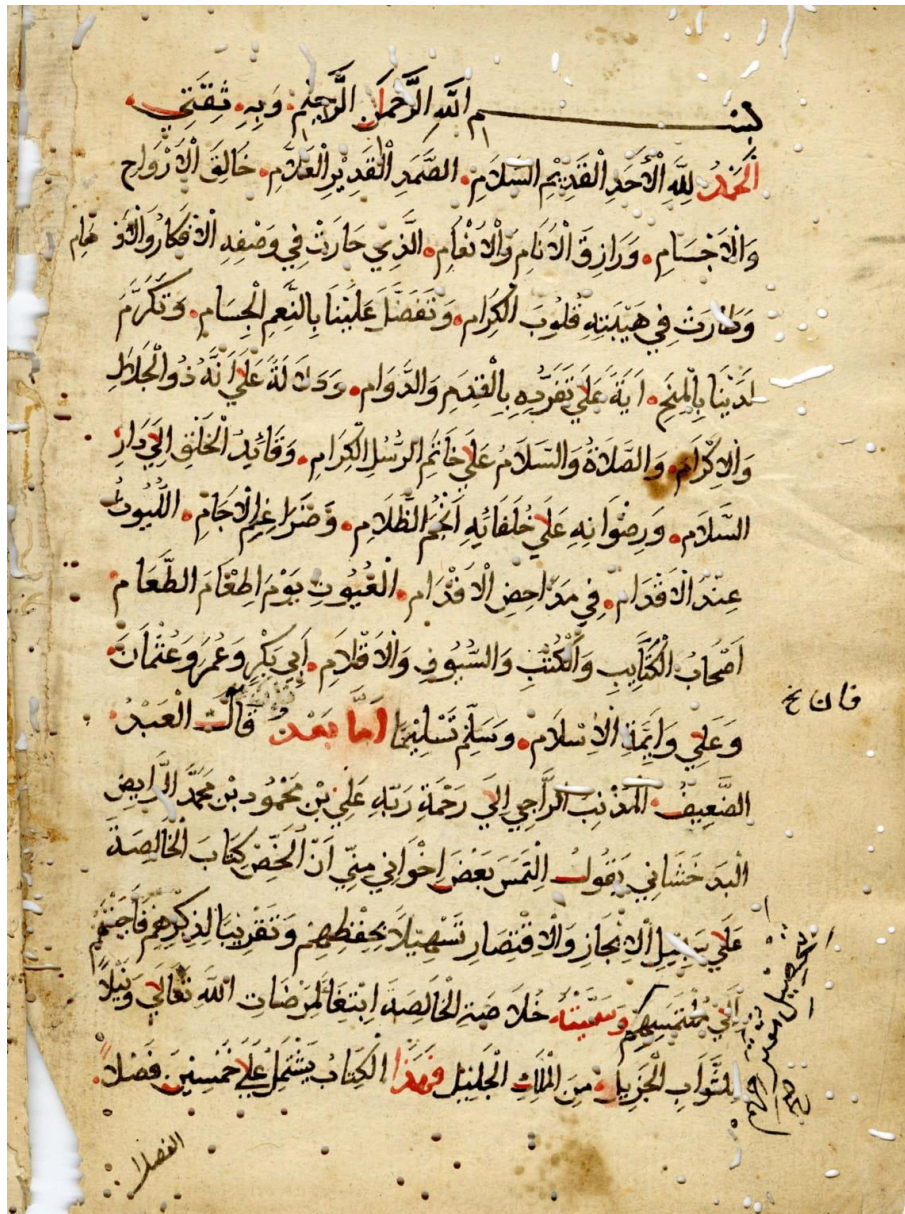 بِسْمِ اللَّهِ الرَّحْمَنِ الرَّحِيمِ وَبِهِ ثِقَتِي
الْحَمْدُ لِلَّهِ الْأَحَدِ الْقَدِيْمِ السَّلَامِ الصَّمَدِ الْقَدِيْرِ الْعَلَّامِ خَالِقِ الْاَرْوَاحِ
وَالْاَجْسَامِ وَرَازِقِ الْاَنَامِ وَالْاَنْعَامِ الَّذِيْ حَارَتْ فِي وَصْفِهِ الْاَفْكَارُ وَالْاَوْهَامِ
وَطَارَتْ فِي هَيْبَتِهِ قُلُوبُ الْكِرَامِ وَتَفَضَّلَ عَلَيْنَا بِالنِّعَمِ الْجِسَامِ وَتَكَرَّمَ
لَدَيْنَا بِالْمِنَحِ اَيَةً عَلَي تَفَرُّدِهِ بِالْقِدَمِ وَالدَّوَامِ وَدَلَالَةً عَلَي اَنَّهُ ذُو الْجَلَالِ
وَالْاِكْرَامِ وَالصَّلَاةُ وَالسَّلَامُ عَلَي خَاتَمِ الرُّسُلِ الْكِرَامِ وَقَائِدِ الْخَلْقِ اِلَي دَارِ
السَّلَامِ وَرِضْوَانِهِ عَلَي خُلَفَائِهِ اَنْجُمِ الظَّلَامِ وَضَرَاغِمِ الْاَجَامِ اللُّيُوثُ
عِنْدَ الْاَقْدَامِ فِي مَدَاحِضِ الْاَقْدَامِ الْغُيُوثِ يَوْمَ اِطْعَامِ الطَّعَامِ
اَصْحَابُ الْكَتَايِبِ وَالْكُتُبِ وَالسُّيُوفِ وَالْاَقْلَامِ اَبِي بَكْرٍ وَعُمَرَ وَعُثْمَانَ
وَعَلِي وَايَمَّةِ الْاِسْلَامِ وَسَلَّمَ تَسْلِيْمًا اَمَّا بَعْدُ قَالَ الْعَبْدُ
فان خ
الضَّعِيفُ الْمُذْنِبُ الرَّاجِي اِلَي رَحْمَةِ رَبِّهِ عَلِي بْنِ مَحْمُودِ بْنِ مُحَمَّدٍ الرَّايِضِ
الْبَدَخْشَانِي يَقُولُ اِلْتَمَسَ بَعْضَ اِخْوَانِي مِنِّي اَنْ اُلَخِّصَ كِتَابَ الْخَالِصَةَ
عَلَي سَبِيْلِ الْاِيْجَازِ وَالْاِقْتِصَارِ تَسْهِيْلًا لِحِفْظِهِمْ وَتَقْرِيْبًا لِذِكْرِهِمْ فَاَجَبْتُهُمْ
اِلَي مُلْتَمَسِهِمْ وَسَمَّيْتُهُ خُلَاصَةَ الْخَالِصَةِ اِبْتِغَاءً لِمَرْضَاتِ اللَّهِ تَعَالَي وَنَيْلًا
لِلثَّوَابِ الْجَزِيلِ مِنَ الْمَلِكِ الْجَلِيْلِ فَهَذَا الْكِتَابُ يَشْتَمِلُ عَلَي خَمْسِينَ فَصْلًا
الفصلا